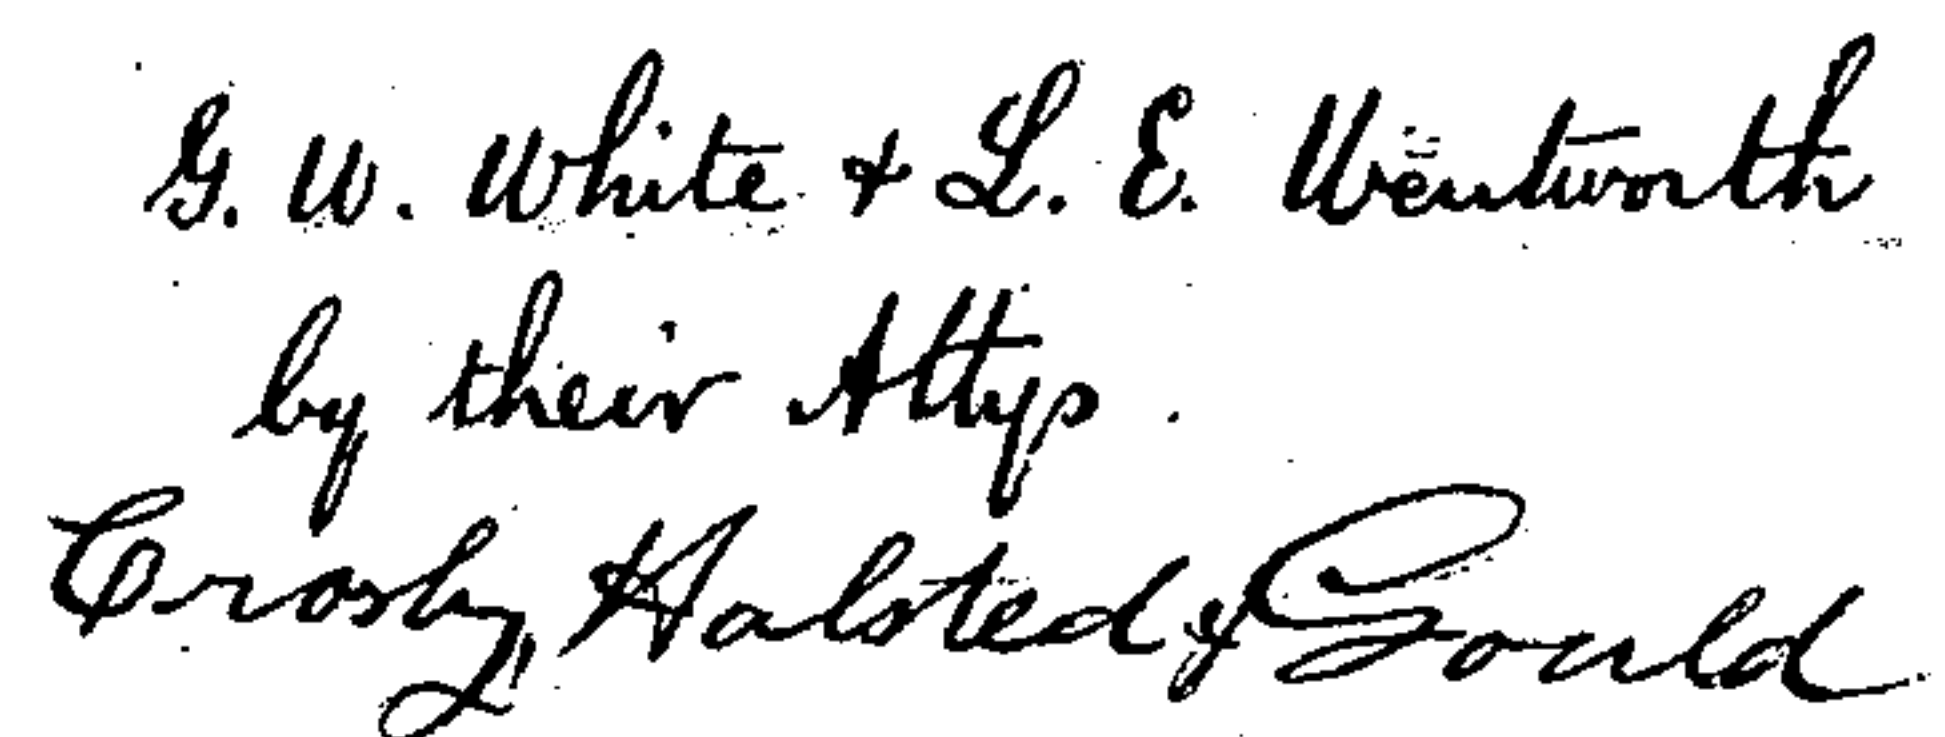 G. W. White & L. E. Wentworth
by their Attys.
Crosby, Halsted & Gould